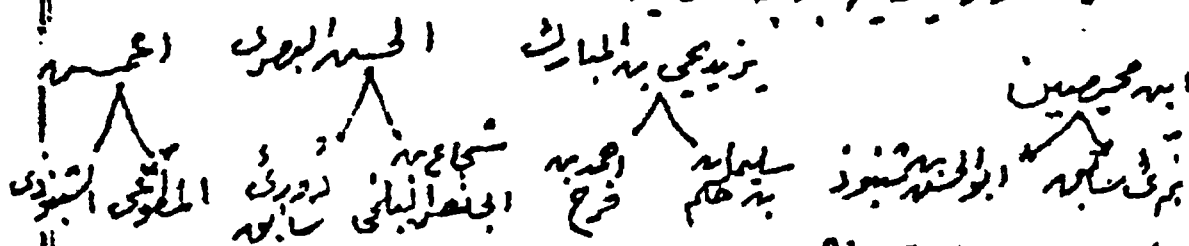 ابن محيصين يزيدي يحيى بن المبارك الحسن البصرى اعمش
بزى سابق ابو الحسن بن شنبوذ سليمان بن حكم احمد بن فرح شجاع بن ابى نصر البلخى دورى سابق المطوعى الشنبوذى